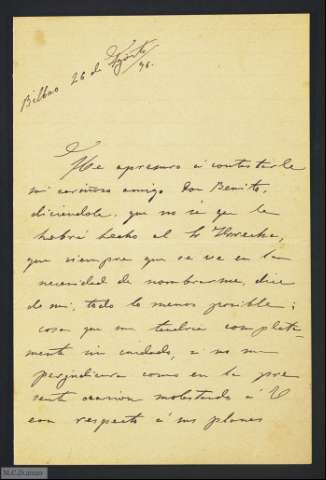 Bilbao 26 de Agosto/96.
Me apresuro á contestarle
mi cariñoso amigo Don Benito,
diciendole, que no sé que le
habré hecho al Sr
que siempre que se ve en la
necesidad de nombrarme, dice
de mi, todo lo menos posible;
cosa que me tendria completa-
mente sin cuidado, si no me
perjudicara como en la pre
sente ocasion molestando á V
con respecto á sus planes